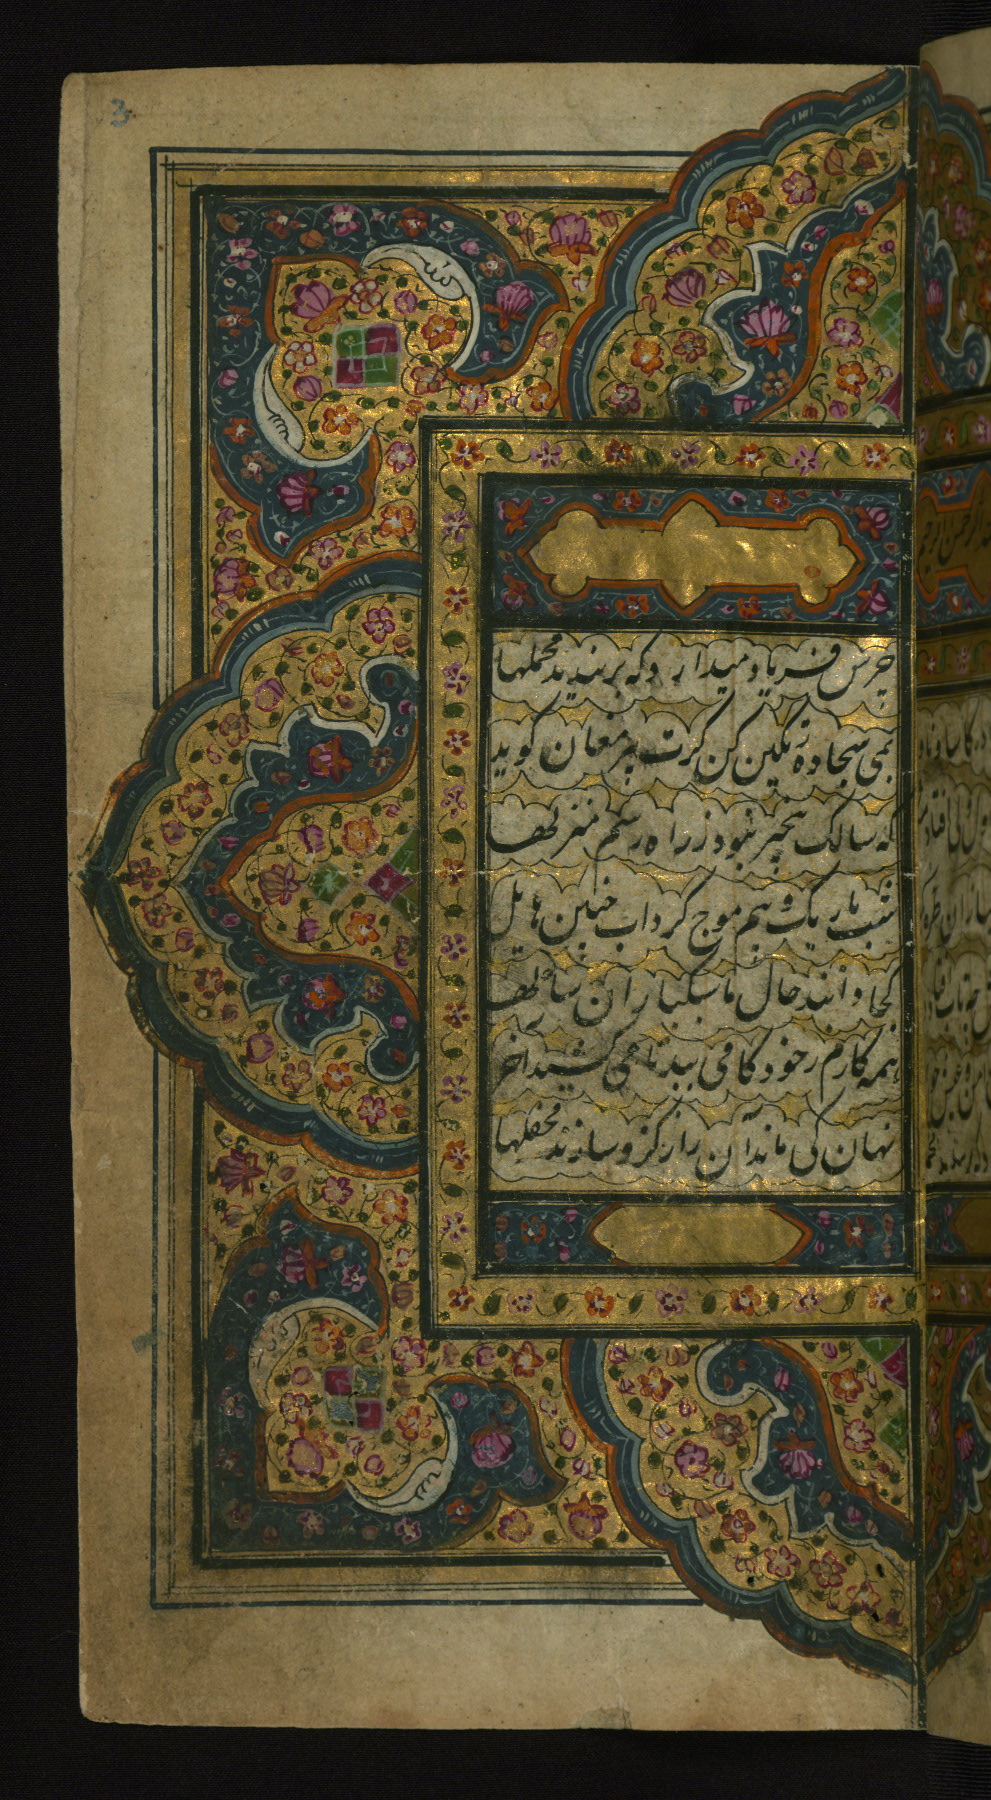 3
جرس فریاد میدارد که بربندید محملها
بمی سجاده رنگین کن کرت پیر مغان کوید
که سالک بیخبر نبود ز راه رسم منزلها
شب تاریک و بیم موج گرداب چنین هایل
کجا دانند حال ما سبکباران ساحلها
همه کارم ز خود کامی ببدنامی کشید اخر
نهان کی ماند آن رازی کزو سازند محفلها